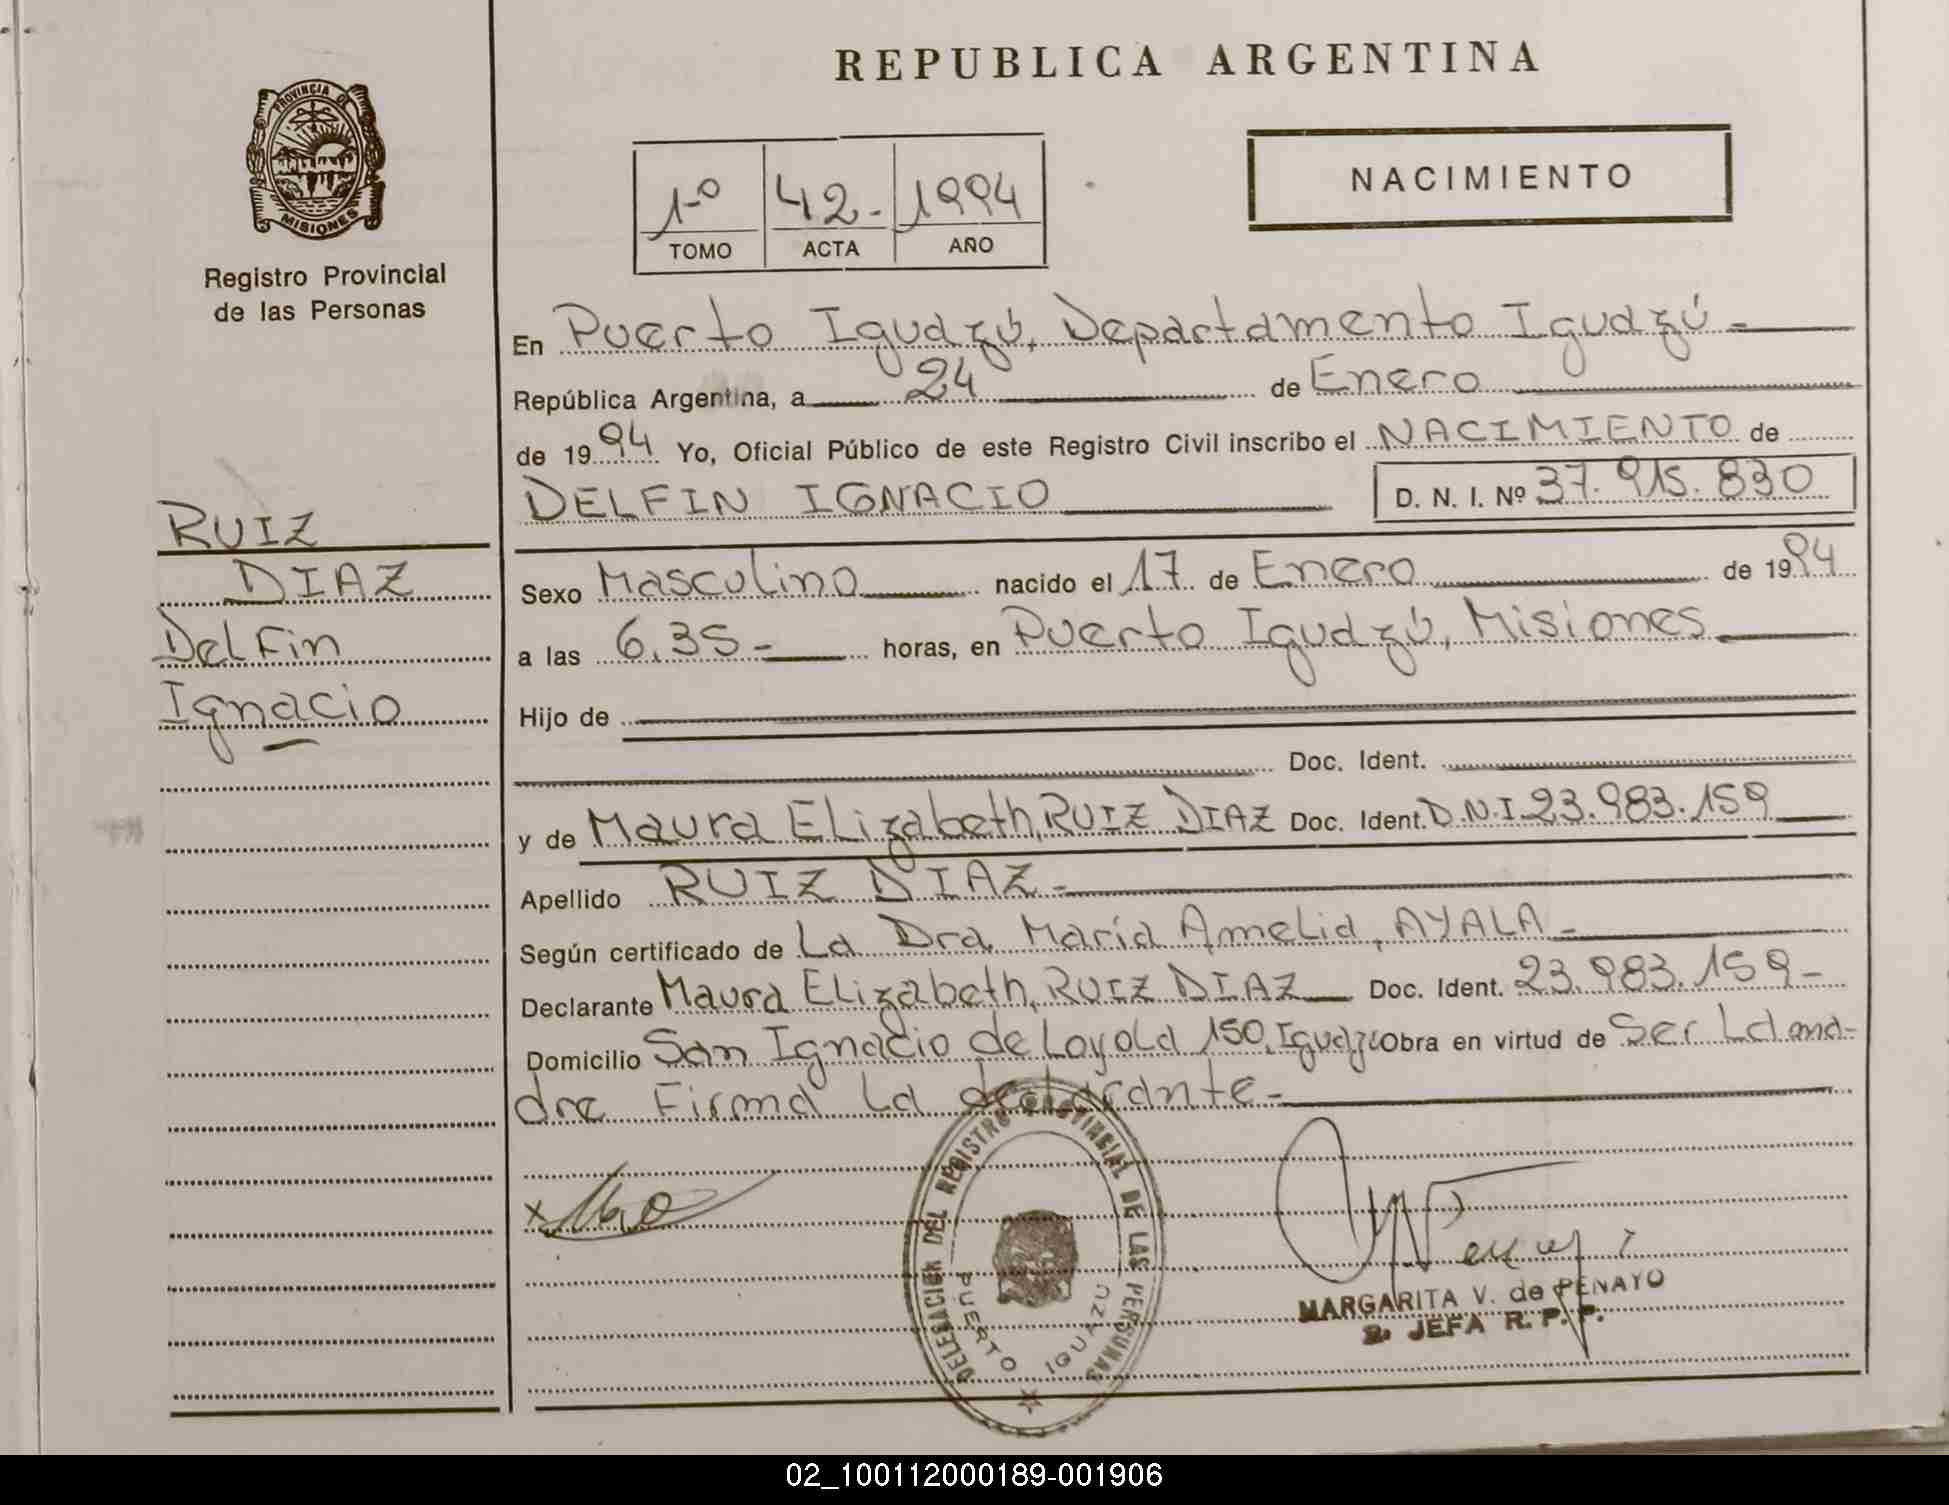 REPUBLICA ARGENTINA
PROVINCIA DE
MISIONES
Registro Provincial
de las Personas
1º 42- 1994
TOMO ACTA AÑO
NACIMIENTO
En Puerto Iguazú, Departamento Iguazú -
República Argentina, a 24 de Enero
de 1994 Yo, Oficial Público de este Registro Civil inscribo el NACIMIENTO de
DELFIN IGNACIO D. N. I. Nº 37.915.830
RUIZ
DIAZ
Delfin
Ignacio
Sexo Masculino nacido el 17 de Enero de 1994
a las 6,35- horas, en Puerto Iguazú, Misiones
Hijo de
Doc. Ident.
y de Maura Elizabeth, RUIZ DIAZ Doc. Ident. D.N.I 23.983.159
Apellido RUIZ DIAZ-
Según certificado de La Dra. María Amelia, AYALA-
Declarante Maura Elizabeth, RUIZ DIAZ Doc. Ident. 23.983.159-
Domicilio San Ignacio de Loyola 150, Iguazú Obra en virtud de Ser La ma-
dre Firma La declarante-
x
DELEGACION DEL REGISTRO PROVINCIAL DE LAS PERSONAS
PUERTO IGUAZU
MARGARITA V. de PENAYO
JEFA R. P. P.
02_100112000189-001906